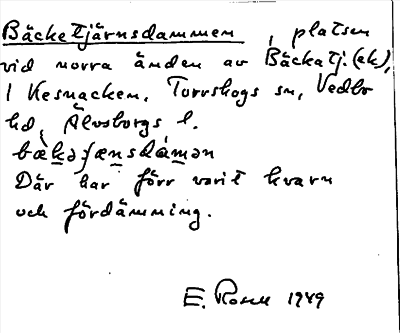 Bäcketjärnsdammen, platsen
vid norra änden av Bäckatj. (ek),
i Kesnacken, Torrskogs sn, Vedbo
hd, Älvsborgs l.
Där har förr varit kvarn
och fördämning.
E. Rosell 1949